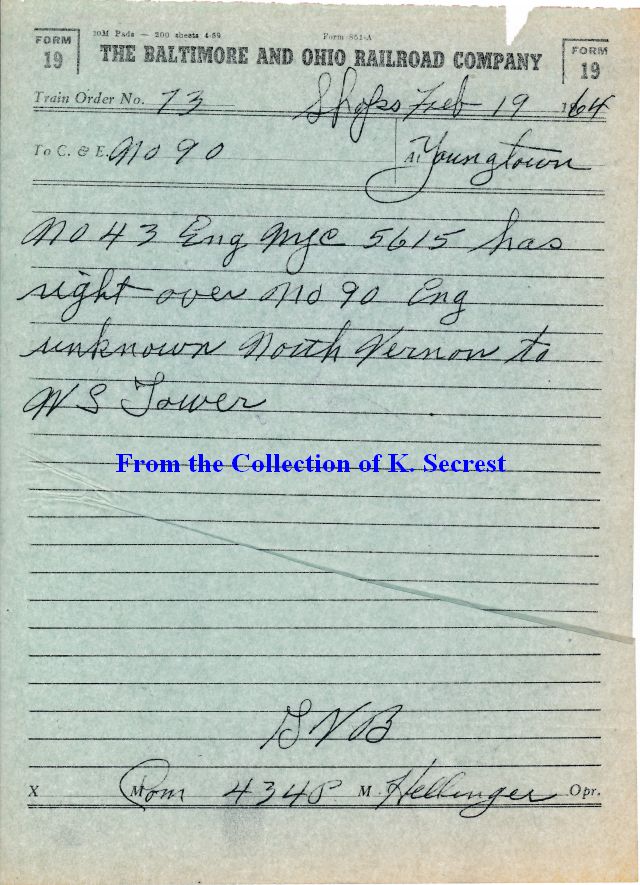 FORM 19
10M Pads — 200 sheets 4-59 Form 851-A
THE BALTIMORE AND OHIO RAILROAD COMPANY
FORM 19
Train Order No. 73 Shops Feb 19 1964
To C. & E. No 90 At Youngtown
No 43 Eng NYC 5615 has
right over No 90 Eng
unknown North Vernon to
W S Tower
From the Collection of K. Secrest
X M Com 434 P M. Hellinger Opr.